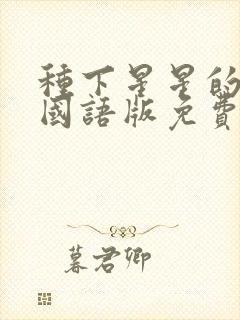 種下星星的
國語版免費
暮君卿